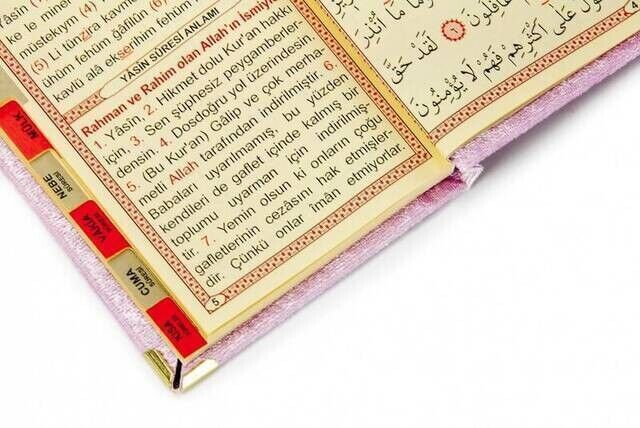 Yâsîn
müstekıym (4)
(5) Li tünzira kavme
ühüm fehüm ğafilûn (6)
kavlü alâ ekserihim fehüm
YÂSÎN SÛRESİ ANLAMI
Rahman ve Rahim olan Allah'ın İsmiyle
1. Yâsîn, 2. Hikmet dolu Kur'an hakkı
için, 3. Sen şüphesiz peygamberler-
densin. 4. Dosdoğru yol üzerindesin.
5. (Bu Kur'an) Gâlip ve çok merha-
metli Allah tarafından indirilmiştir. 6.
Babaları uyarılmamış, bu yüzden
kendileri de gaflet içinde kalmış bir
toplumu uyarman için indirilmiş-
tir. 7. Yemin olsun ki onların çoğu
gafletlerinin cezasını hak etmişler-
dir. Çünkü onlar îmân etmiyorlar.
5
مَا أُنْذِرَ
غَافِلُونَ ٦ لَقَدْ حَقَّ
عَلَى أَكْثَرِهِمْ فَهُمْ لَا يُؤْمِنُونَ
MÜLK
NEBE
SÛRESİ
VÂKIA
SÛRESİ
CUMA
SÛRESİ
KISA
SÛRELER